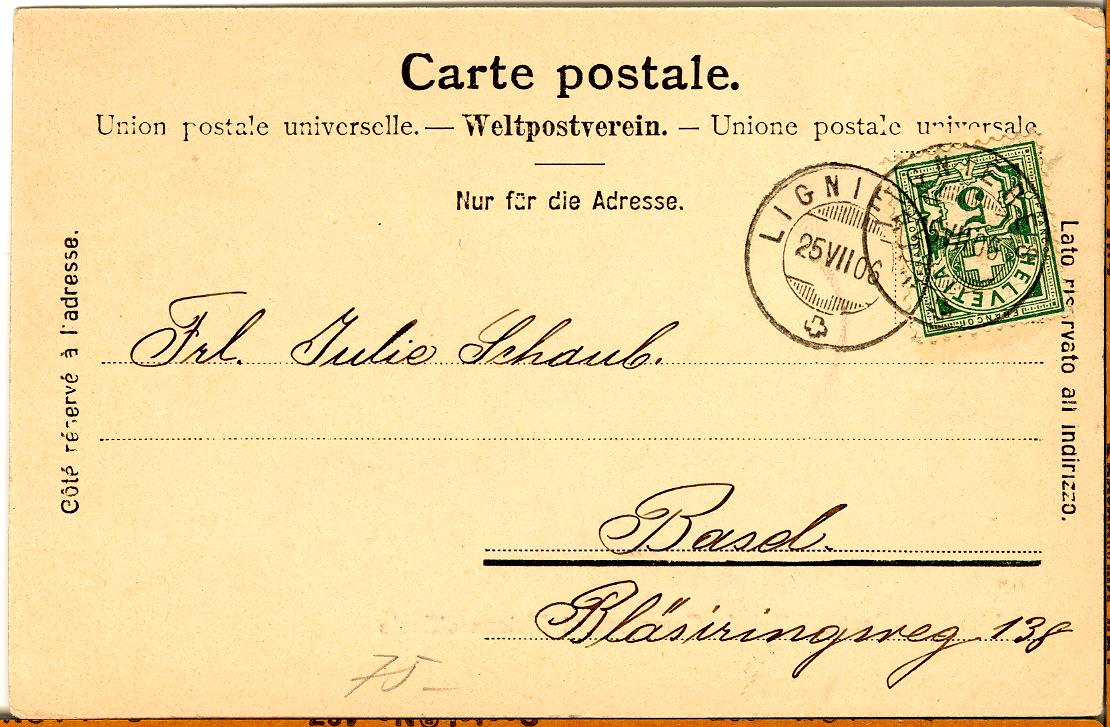 Carte postale.
Union postale universelle. — Weltpostverein. — Unione postale universale
Nur für die Adresse.
Côté réservé à l'adresse.
Lato riservato all indirizzo.
LIGNIE
25 VII 06
5
HELVETIA
FRANCO
Frl. Julie Schaub.
Basel.
Bläsiringweg 138
75-